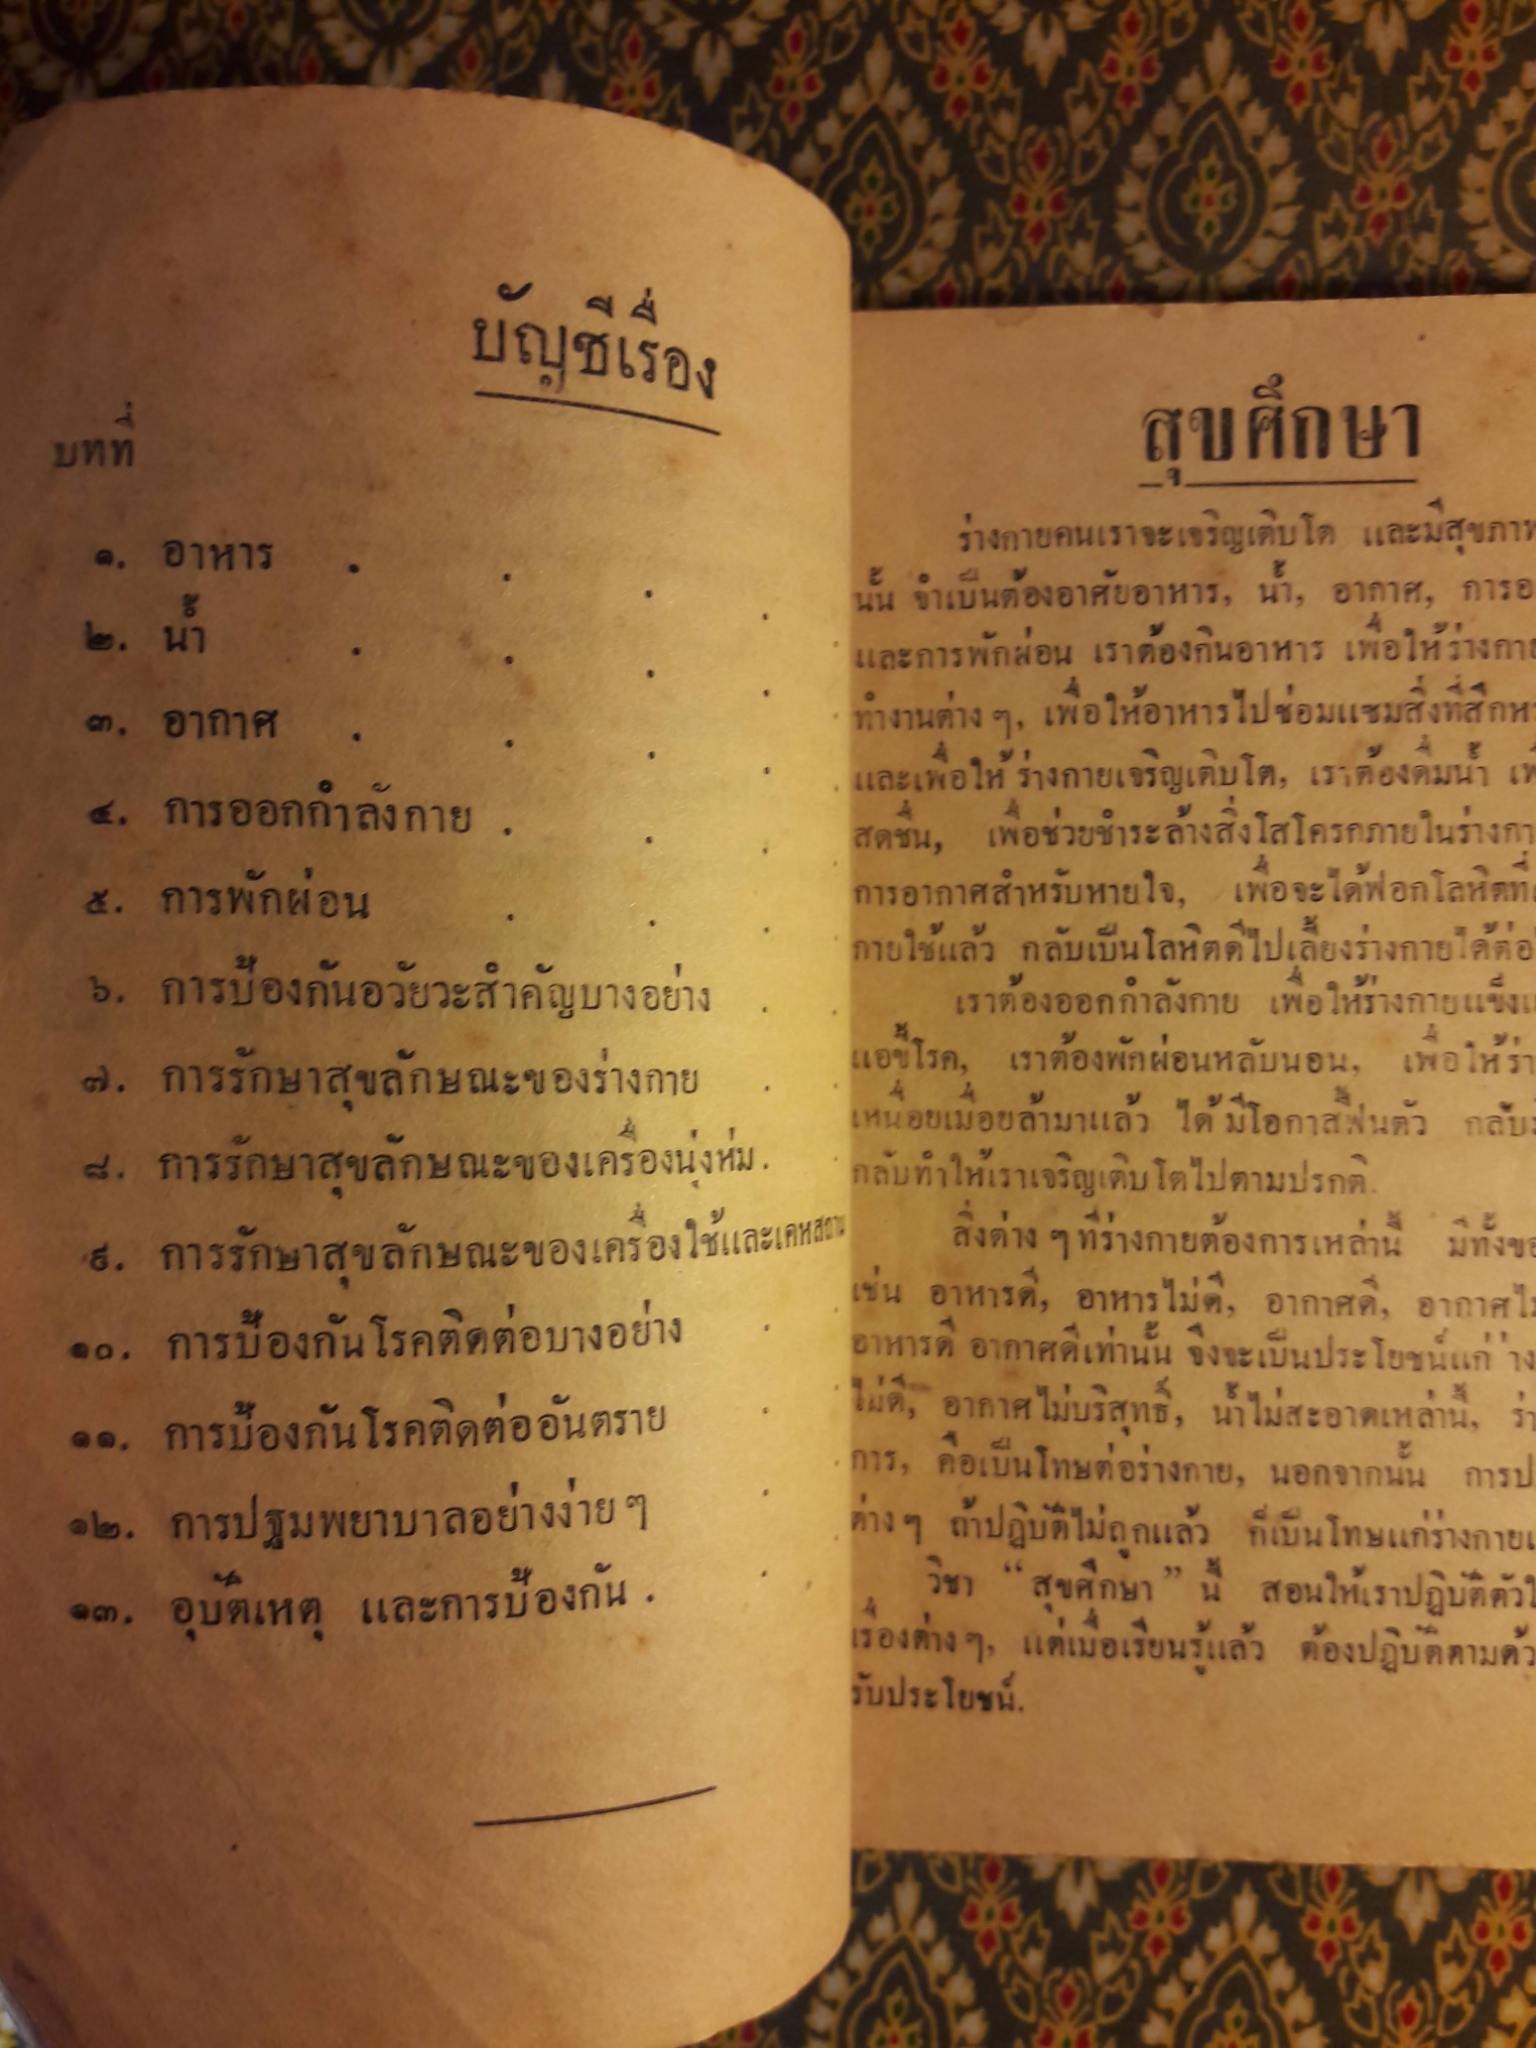 บัญชีเรื่อง
บทที่
๑. อาหาร . . . .
๒. น้ำ . . . .
๓. อากาศ . . . .
๔. การออกกำลังกาย . . .
๕. การพักผ่อน . . .
๖. การป้องกันอวัยวะสำคัญบางอย่าง .
๗. การรักษาสุขลักษณะของร่างกาย .
๘. การรักษาสุขลักษณะของเครื่องนุ่งห่ม .
๙. การรักษาสุขลักษณะของเครื่องใช้และเคหสถาน
๑๐. การป้องกันโรคติดต่อบางอย่าง .
๑๑. การป้องกันโรคติดต่ออันตราย .
๑๒. การปฐมพยาบาลอย่างง่าย ๆ .
๑๓. อุบัติเหตุ และการป้องกัน . .
สุขศึกษา
ร่างกายคนเราจะเจริญเติบโต และมีสุขภาพ
นั้น จำเป็นต้องอาศัยอาหาร, น้ำ, อากาศ, การอ
และการพักผ่อน เราต้องกินอาหาร เพื่อให้ร่างกาย
ทำงานต่าง ๆ, เพื่อให้อาหารไปซ่อมแซมสิ่งที่สึกห
และเพื่อให้ร่างกายเจริญเติบโต, เราต้องดื่มน้ำ เพื่
สดชื่น, เพื่อช่วยชำระล้างสิ่งโสโครกภายในร่างกา
การอากาศสำหรับหายใจ, เพื่อจะได้ฟอกโลหิตที่
กายใช้แล้ว กลับเป็นโลหิตดีไปเลี้ยงร่างกายได้ต่อ
เราต้องออกกำลังกาย เพื่อให้ร่างกายแข็งแ
แอขี้โรค, เราต้องพักผ่อนหลับนอน, เพื่อให้ร่า
เหนื่อยเมื่อยล้ามาแล้ว ได้มีโอกาสฟื้นตัว กลับ
กลับทำให้เราเจริญเติบโตไปตามปรกติ.
สิ่งต่าง ๆ ที่ร่างกายต้องการเหล่านี้ มีทั้งขอ
เช่น อาหารดี, อาหารไม่ดี, อากาศดี, อากาศไม
อาหารดี อากาศดีเท่านั้น จึงจะเป็นประโยชน์แก่ ่าง
ไม่ดี, อากาศไม่บริสุทธิ์, น้ำไม่สะอาดเหล่านี้, ร่า
การ, คือเป็นโทษต่อร่างกาย, นอกจากนั้น การป
ต่าง ๆ ถ้าปฏิบัติไม่ถูกแล้ว ก็เป็นโทษแก่ร่างกายเ
วิชา “สุขศึกษา” นี้ สอนให้เราปฏิบัติตัวใ
เรื่องต่าง ๆ, แต่เมื่อเรียนรู้แล้ว ต้องปฏิบัติตามด้ว
รับประโยชน์.